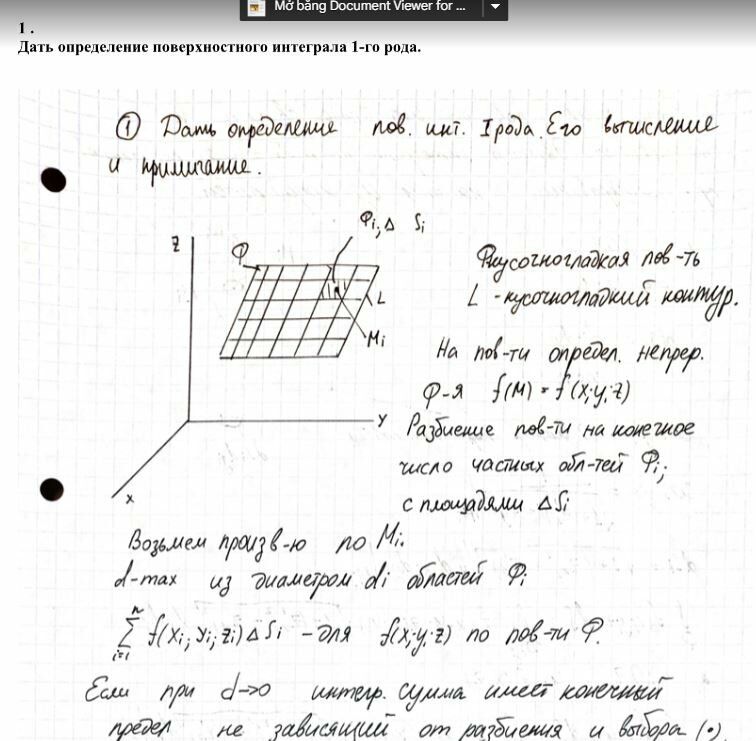 Mở bằng Document Viewer for ...
1 .
Дать определение поверхностного интеграла 1-го рода.
① Дать определение пов. инт. I рода. Его вычисление
и примигание.
Z
Φ
Φi; Δ Si
L
Mi
Y
X
Φкусочногладкая пов-ть
L - кусочногладкий контур.
На пов-ти определ. непрер.
Ф-я f(M) = f(x;y;z)
Разбиение пов-ти на конечное
число частных обл-тей Φi;
с площадями ΔSi
Возьмем произв-ю по Mi.
d-max из диаметром di областей Φi
n
∑ f(xi; yi; zi)ΔSi - для f(x;y;z) по пов-ти Φ.
i=1
Если при d→0 интегр. сумма имеет конечный
предел не зависящий от разбиения и выбора (•)